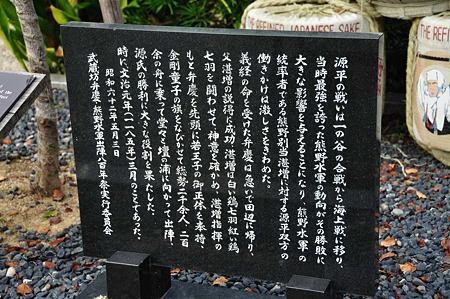 源平の戦いは一の谷の合戦から海上戦に移り、
当時最強を誇った熊野水軍の動向がその勝敗に
大きな影響を与えることになり、熊野水軍の
統率者である熊野別当湛増に対する源平双方の
働きかけは激しさをきわめた。
義経の命を受けた弁慶は急いで田辺に帰り、
父湛増の説得に成功 湛増は白い鶏七羽紅い鶏
七羽を闘わせて、神意を確かめ、湛増指揮の
もと弁慶を先頭に若王子の御正体を奉持、
金剛童子の旗をなびかせて総勢二千余人、二百
余の舟に乗って堂々と壇の浦に向かって出陣、
源氏の勝利に大きな役割を果たした。
時に文治元年(一一八五年)三月のことであった。
昭和六十二年五月三日
武蔵坊弁慶・熊野水軍出陣八百年祭実行委員会
THE REFINED JAPANESE SAKE
THE REFINED